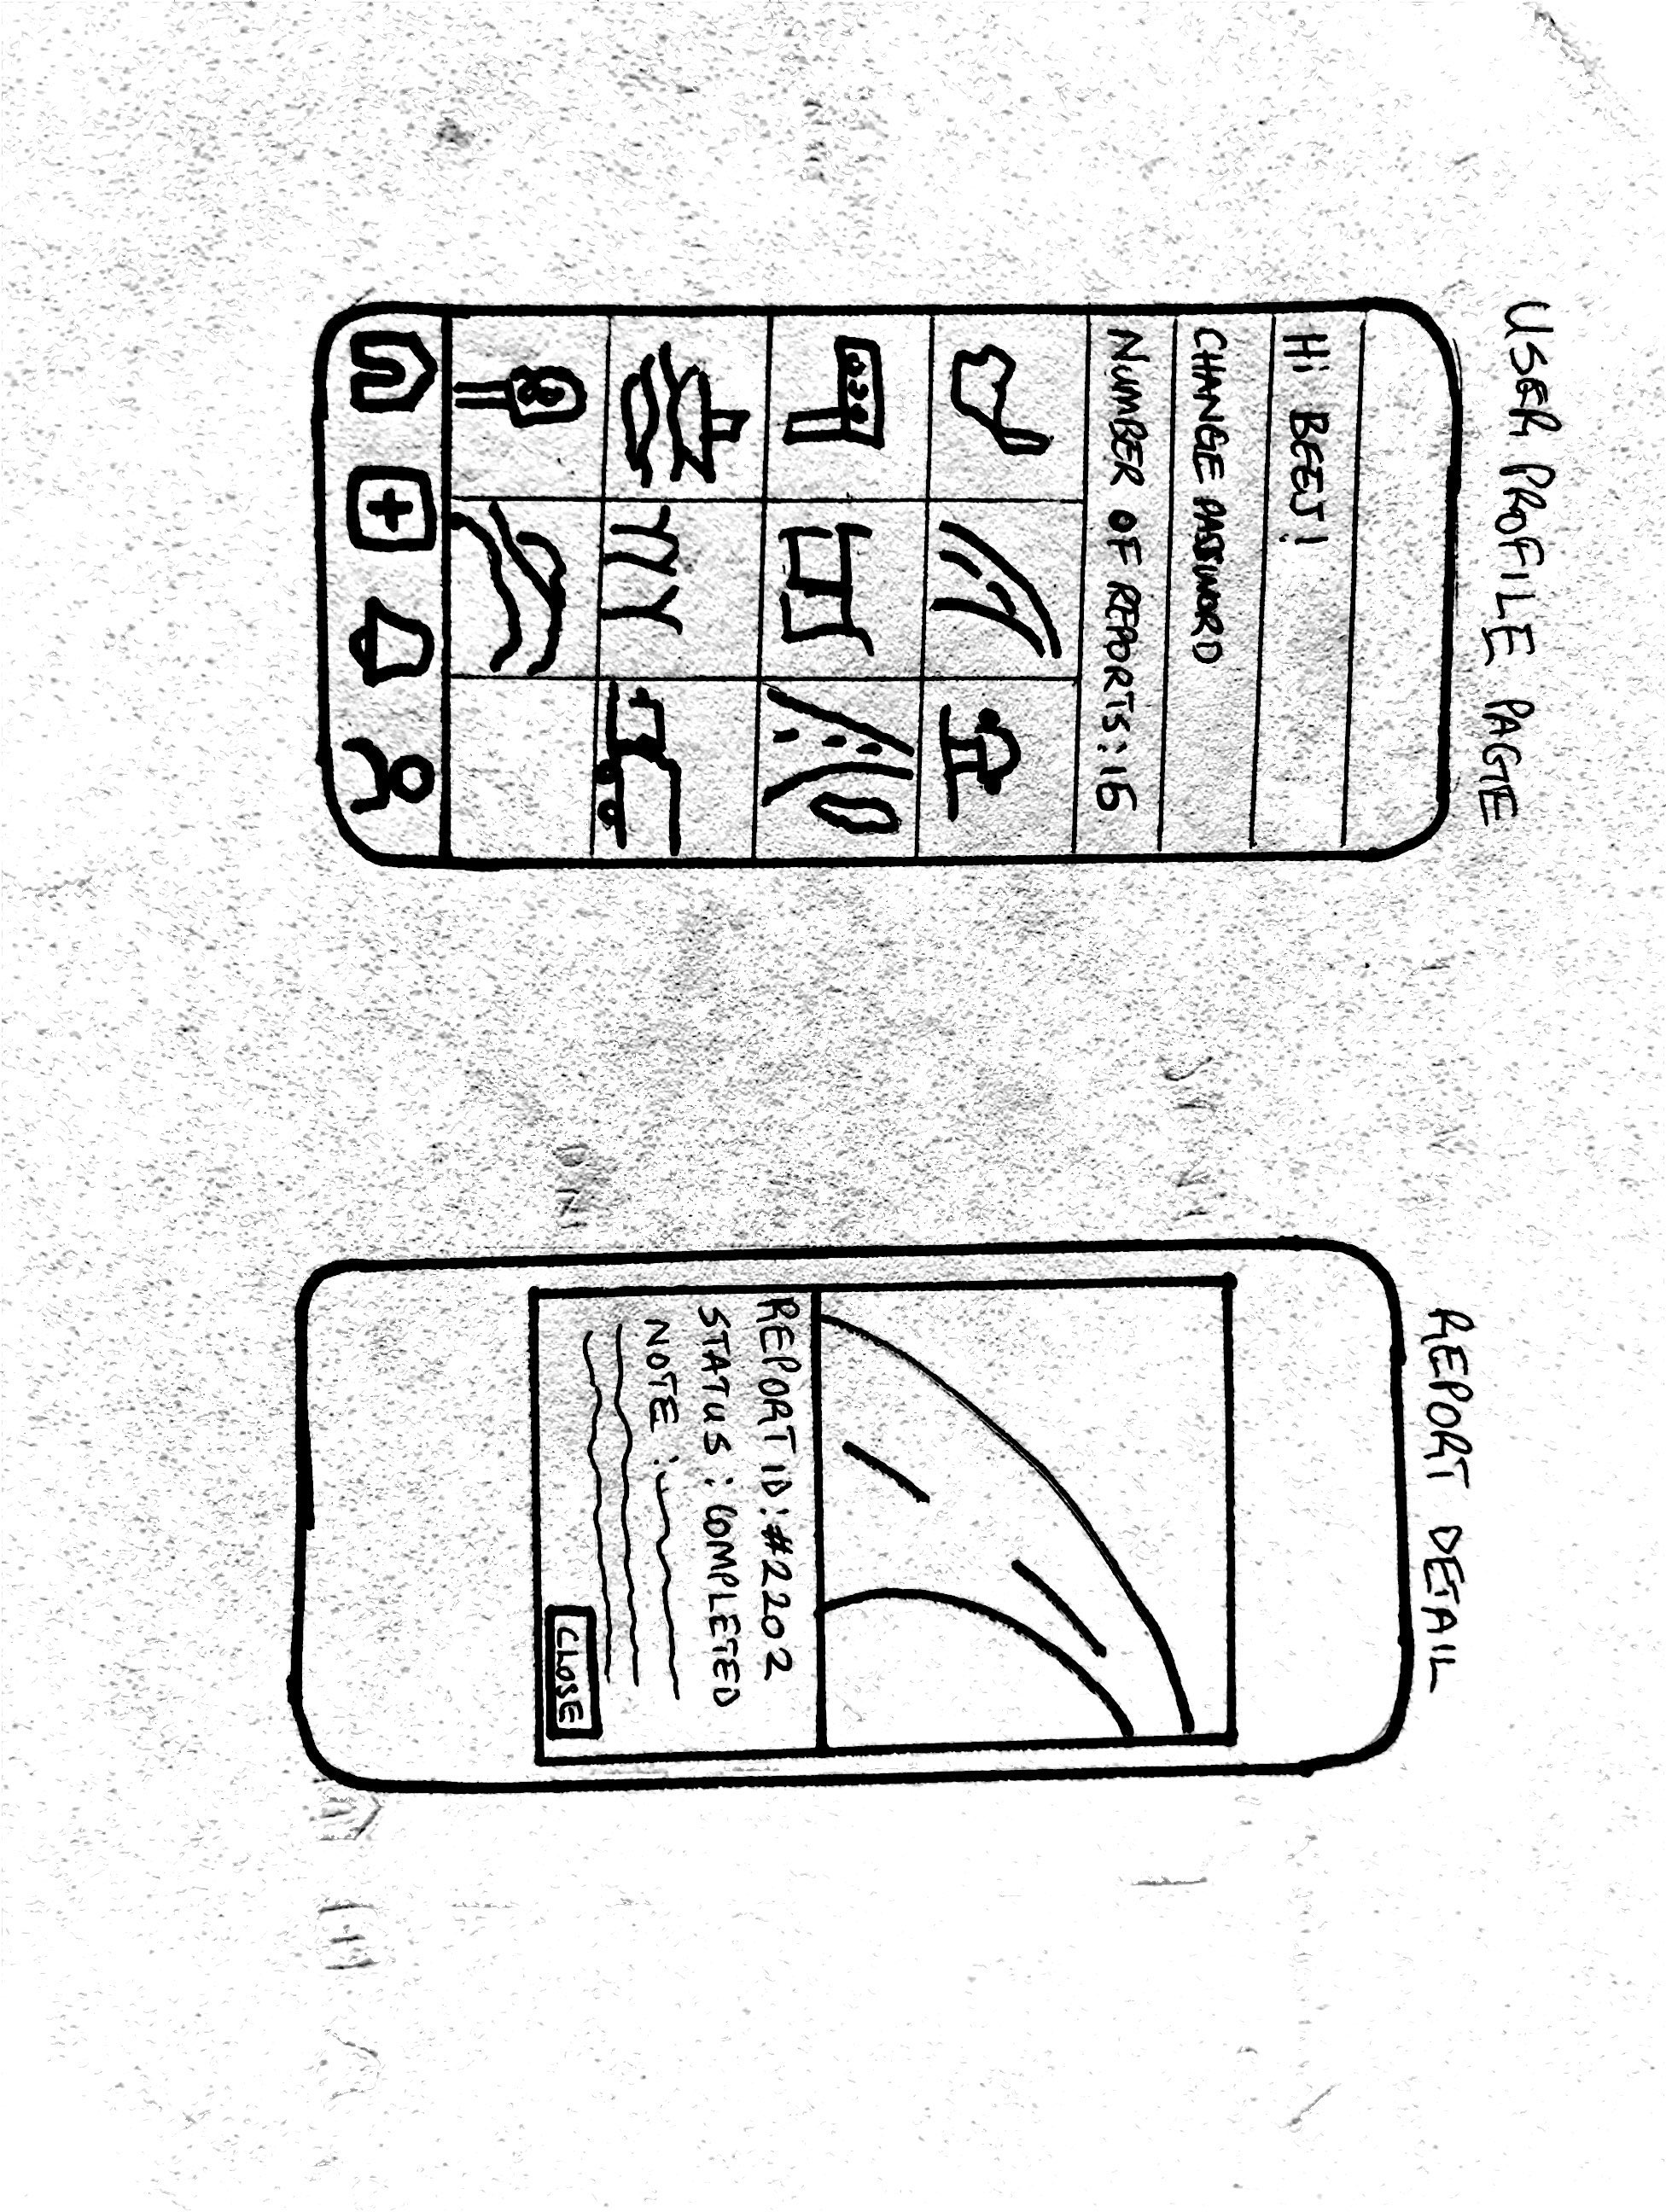 USER PROFILE PAGE
Hi BEEJ!
CHANGE PASSWORD
NUMBER OF REPORTS:16
REPORT DETAIL
REPORT ID:#2202
STATUS: COMPLETED
NOTE:
CLOSE